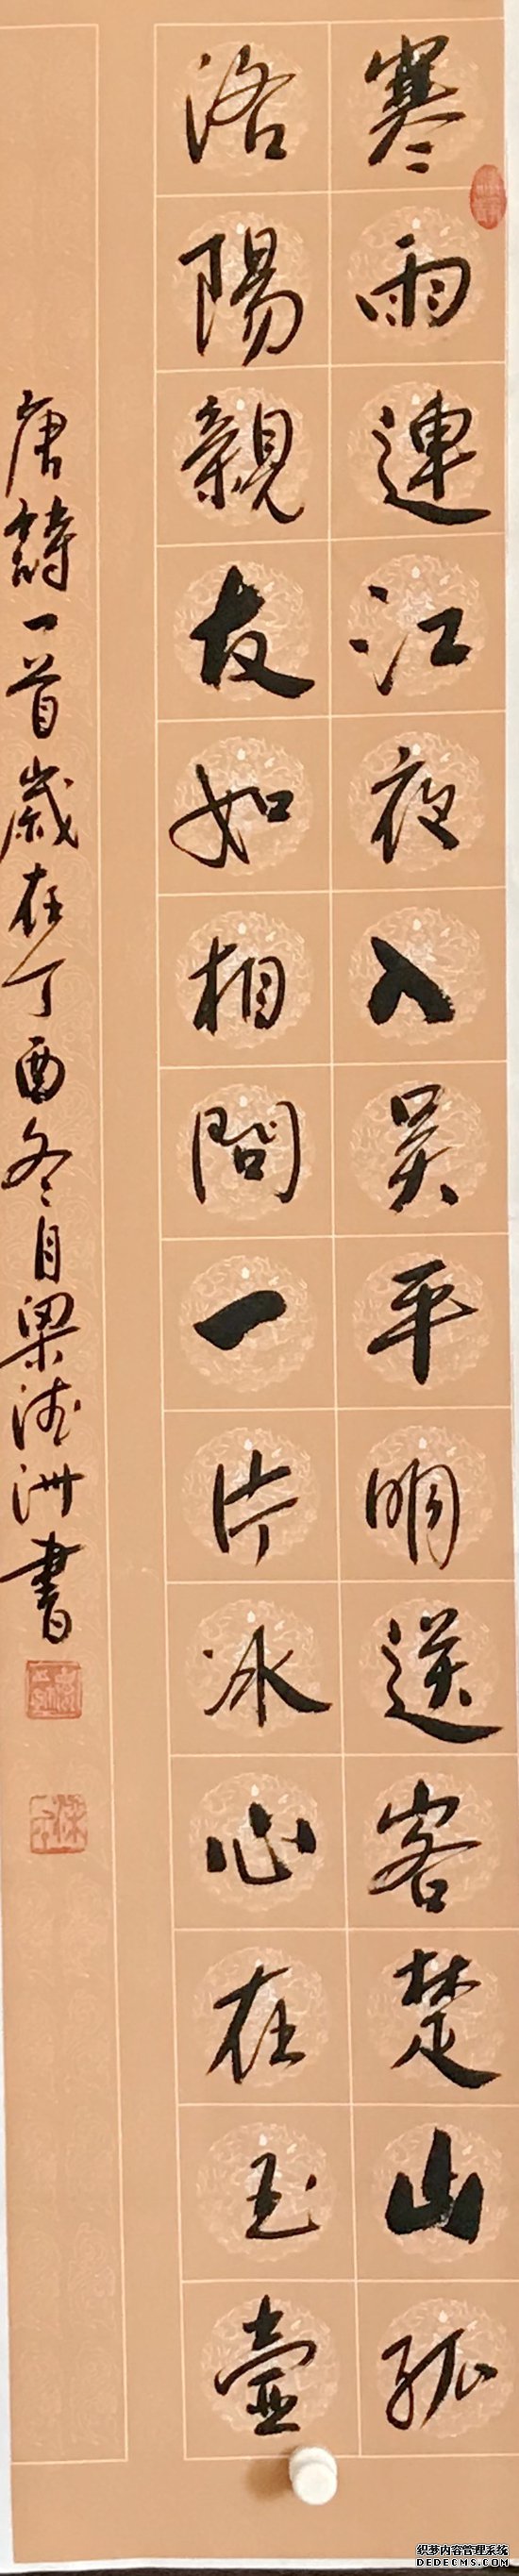 寒雨連江夜入吴平明送客楚山孤
洛陽親友如相問一片冰心在玉壺
唐詩一首歲在丁酉冬月梁洲書
织梦内容管理系统
DEDECMS.COM